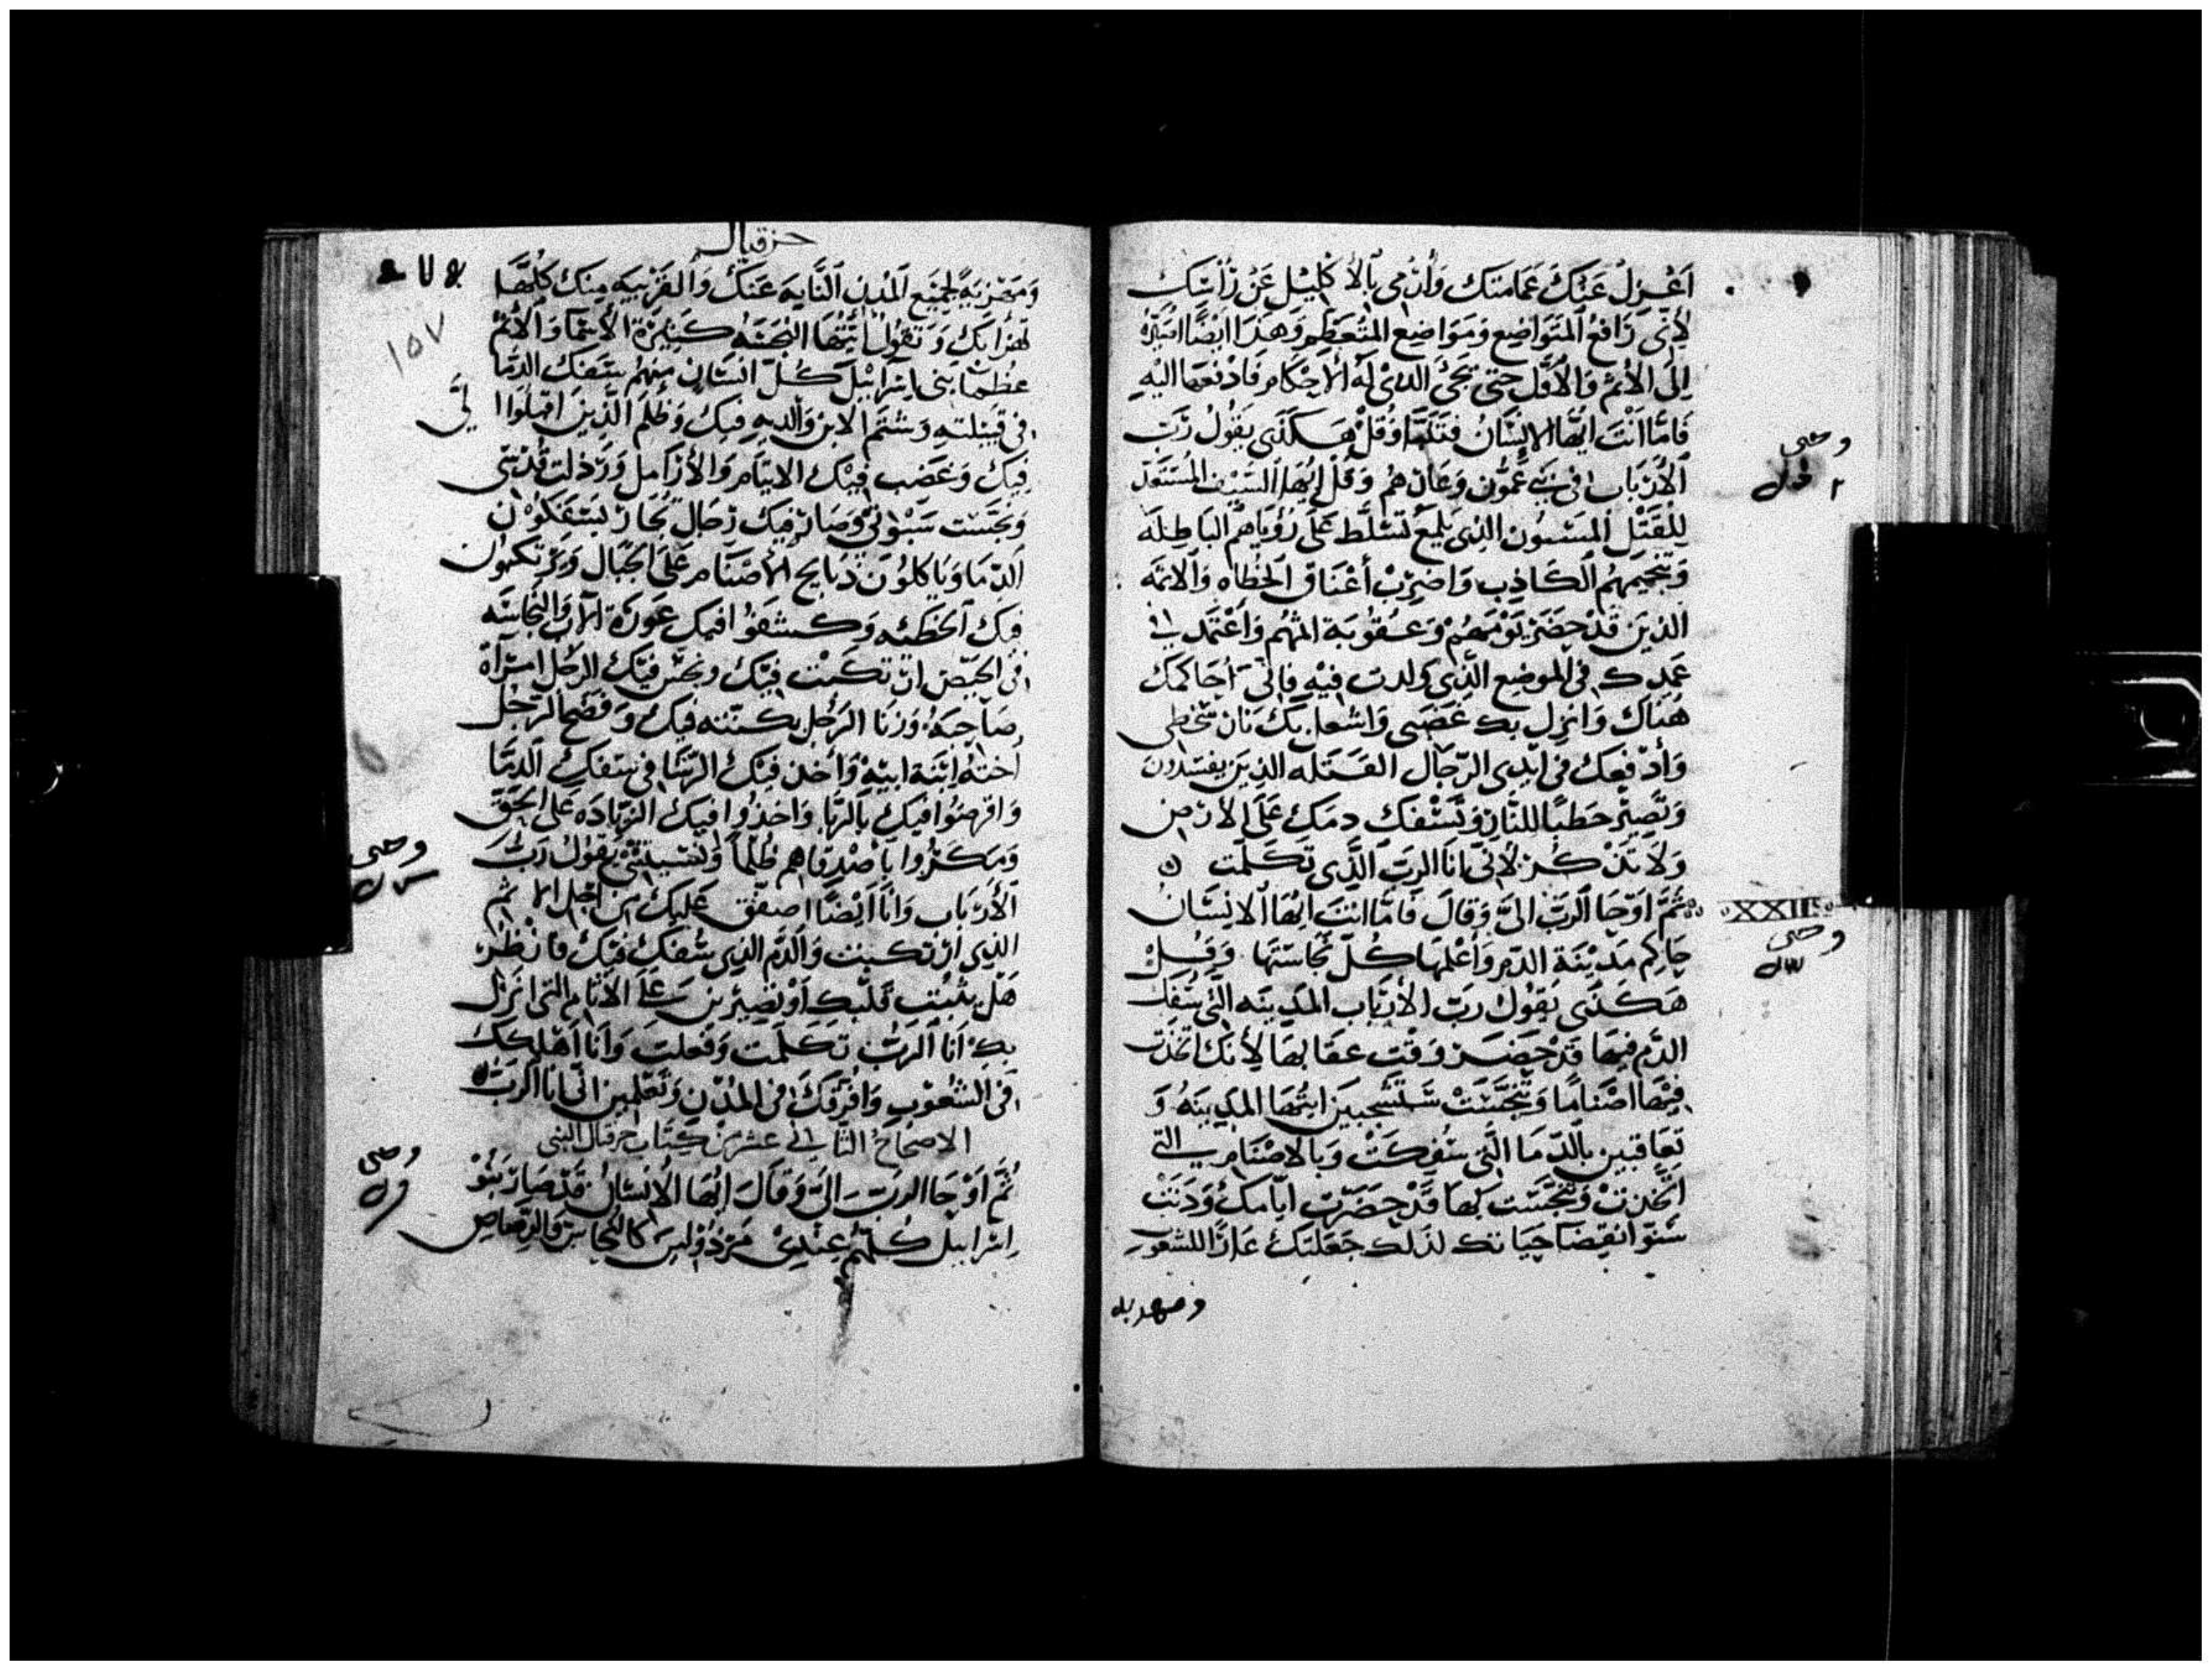 اَعْزِلُ عَنْكَ عَمَامَتَك وَأَرْمِى بِالأكْلِيْل عَنْ رَأسَك
لأَنّى رَافعُ المتَوَاضِع وَمَوَاضِع المتَعَظِم وَهَذَا ايْضًا اصَيّرُه
اِلَى الأثم وَالأوَّل حَتى يَجْئ الدىْ لَه الأحكَام فَادْفعَهَا اليْهِ
فَامَّا اَنْتَ ايُّهَا الانِسَانُ فتَنَبَّا وَقُلْ هَكَذَى يَقُولُ رَبّ
الأَرْبَاب فى بَنى عَمُّون وَعَارهمُ وَقُل ايُّهَا السَيْف المُسْتَعَدّ
لِلقَتْل المَسنُون الذِى يَلمَع تَسَلّط عَلَى رُؤيَاهُم البَاطِلَه
وَتنْجيْمهُم الكَاذِب وَاضرِبْ أعْنَاق الخطَاه وَالاثمَه
الذيْنَ قَدْ حَضَرَ يَوْمَهُمْ وَعُقُوبَة اثمْهُم وَاَغْتَمد فى
غمدِك فى الموضِع الذِي ولدت فيْهِ فَانّى أحَاكمك
هُنَاك وَانزل بك غَضَبى وَاشعل بك نَار سَخَطِى
وَأدْفعَك فى ايْدِى الرّجَال القتَله الذِينَ يفسِدُونَ
وَتَصِيْر حَطبًا لِلنّار وَيَسْفك دمَك عَلَى الأرْض
وَلاَ تذْكر لأنّى انَا الربّ الَّذِى تَكَلّمت
XXII ثُمَّ اوْحَا الربّ الىَّ وَقَالَ فَامَّا انتَ ايُّهَا الانِسَان
حَاكِم مَديْنَة الدّم وَأعْلمهَا كُلّ نجَاسَتهَا وَقُلْ
هَكَذَى يَقُول رَبّ الأرْبَاب المَديْنَه الَّتى سَفَك
الدّم فيْهَا قَدْ حَضَرَ وَقْت عقَابهَا لأنّك اتّخَذت
فيْهَا اصْنَامًا وَتنجّسَتْ سَتسْجسِينَ ايتُّهَا المَديْنَه وَ
تعَاقبيْن بالدّمَا الَّتى سُفِكَتْ وَبالاصْنَام التى
اتخذتْ وَتنجّسَت بهَا قَدْ حَضَرَت ايّامك وَدَنَتْ
سَنوّ انقضَا حيَاتك لذَلك جَعَلتَك عَارًا للشعُوب
وحى
اول
وحى
ومهزيه
حزقيال
٢٧٥
١٥٧
وَمَهْزيَه لجَميْع المُدن النَّايَه عَنك وَالقَرْيبَه مِنك كُلّهَا
يَهْزَا بكِ وَتقُول أيّتُهَا النجسَه كَثيْرَة الأسمَا وَالأثم
عظمَا بَنى اسْرَائيْل كُلّ انسَان منهُم بسَفك الدّمَا
فى قبيْلتهِ وَشتَم الابن وَالديه فيك وَظلم الَّذينَ اقبَلُوا الَىّ
فيك وَغضب فيْك الايتَام وَالأرَامل وَرَذلت قُدْسِى
وَنجّسْت سُبُوتىْ وَصَار فيك رجَال تجَارْ يَسْفكُوْن
الدّمَا وَيَاكلُوْن ذبَايح الأصْنَام عَلَى الجبَال وَيرتكبُون
فيك الخَطيْئه وَكشفَوُا فيك عَوْرَة الاب وَالنجاسَه
فى الحَيْض ارتكبت فيْك ونجّس فيْك الرجُل امرَأة
صَاحبهُ وَزنَا الرَجُل بكنّته فيك وَفضح الرجُل
أختَهُ ابْنَة ابيْه وَأخذ فيْك الرشَا فى سَفك الدّمَا
وَاقرضُوا فيك بالرّبَا وَاخذُوا فيك الزيَادَه عَلَى الحَقّ
وَمكرُوا باصْدقَاهم ظُلماً وَنسيتىْ يَقُول رَبّ
الأرْبَاب وَانَا ايْضًا اصَفّق عَليك من اجل الاثم
الذِى ارتكبتِ وَالدّم الذِى سُفك فيْك فَانْظُرْ
هَل يثبُت قَلبَك اوْ تصْبرين عَلَى الأيّام التى انزل
بك انَا الرَبّ تَكَلّمت وَفَعلتَ وَانَا اهْلكك
فى الشعُوْب وَافرّقَك فى المُدُن وَتعْلمين انّى انَا الربّ
الاصحاحُ الثانى عشر من كتاب حزقيال النبى
ثُمّ اوْحَا الربّ الىَّ وَقَالَ ايُّهَا الانسَان قَدْ صَارَ بَنُوْ
اسْرَائيل كُلّهُمْ عنْدىْ مَرْذُوْلين كَالنّحَاس وَالرصَاص
وحى
وحى